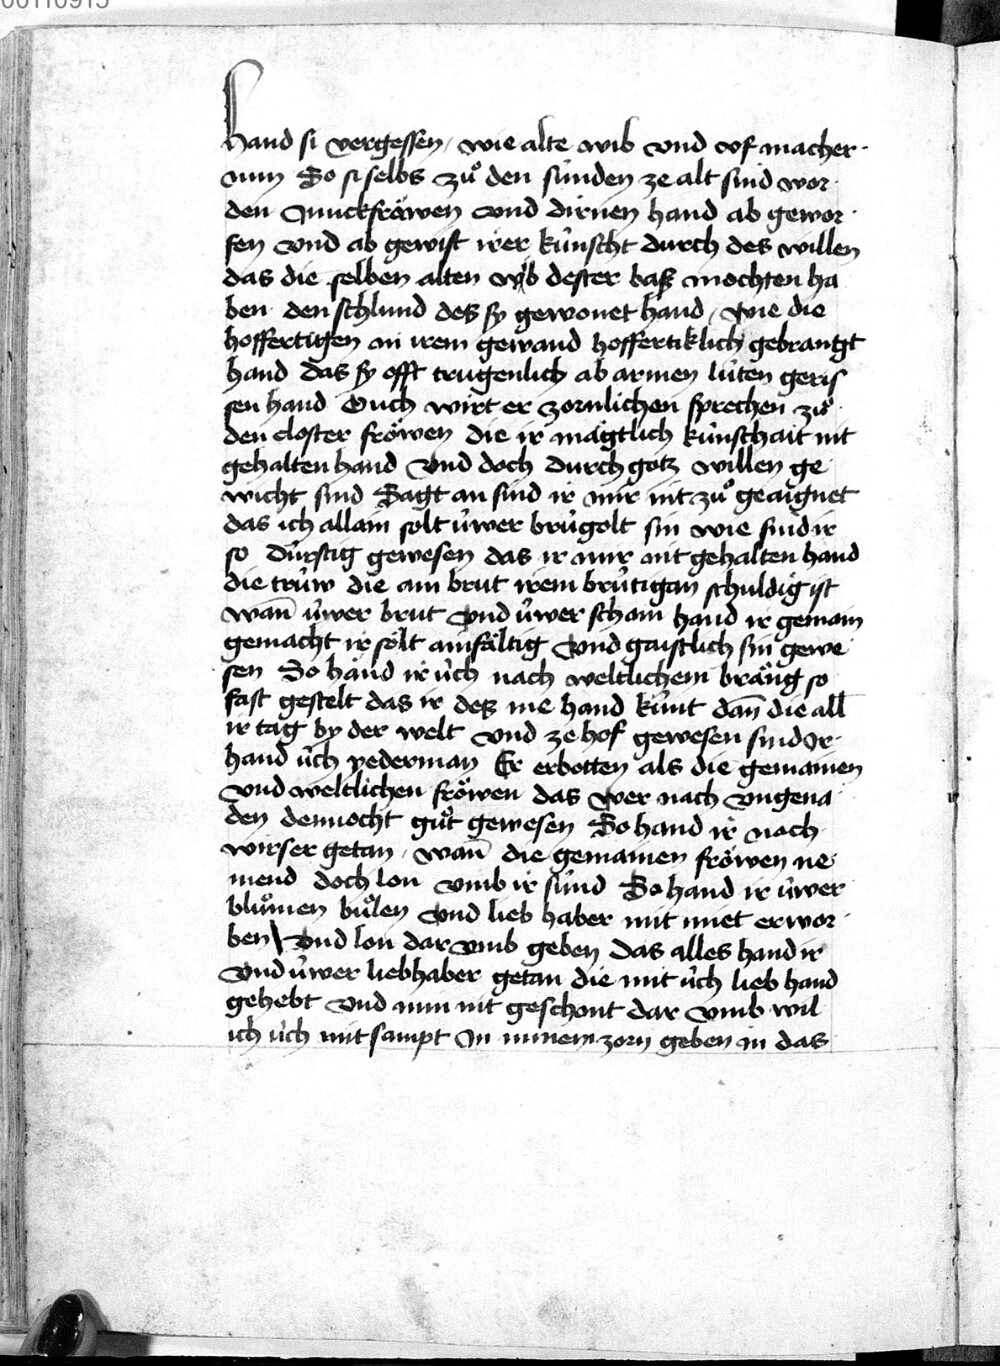 00110915
hand si vergessen / wie alte wib vnd vf macher
nun So si selbs zuͦ den súnden ze alt sind wor
den Junckfröwen vnd dirnen hand ab gewor
fen vnd ab gewist irer kúnscht durch des willen
das die selben alten wib dester bas mochten ha
ben den schlund des sy gewonet hand / wie die
hoffertigen in irem gewand hoffertiklich gebrangt
hand das sy offt trugenlich ab armen lúten geris
sen hand Ouch wirt er zornlichen sprechen zuͦ
den closter fröwen die ir mägtlich kúnschait nit
gehalten hand vnd doch durch gotz willen ge
wicht sind Sagt an sind ir mir nit zuͦ geaignet
das ich allain solt úwer brúgolt sin wie sind ir
so dúrstig gewesen das ir mir nit gehalten hand
die trúw die ain brut irem brútigan schuldig ist
wan̄ úwer brut vnd úwer scham hand ir gemain
gemacht ir sölt ainfältig vnd gaistlich sin gewe
sen So hand ir úch nach weltlichem bräng so
fast gestelt das ir des me hand kúnt dan̄ die all
ir tag by der welt vnd ze hof gewesen sind Ir
hand úch yederman Er erbotten als die gemainen
vnd weltlichen fröwen das wer nach vngena
den dennocht guͦt gewesen So hand ir noch
wirser getan / wan̄ die gemainen fröwen ne
mend doch lon vmb ir súnd So hand ir úwer
bluͦmen buͦlen vnd lieb haber mit miet erwor
ben \ vnd lon dar vmb geben Das alles hand ir
vnd úwer liebhaber getan die mit úch lieb hand
gehebt vnd min nit geschont dar vmb wil
ich úch mit sampt In minem zorn geben in das